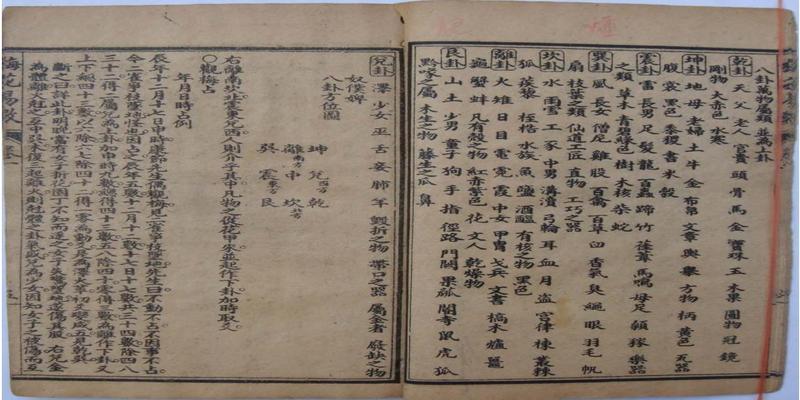 八卦萬物屬類 並為上卦
乾卦 天 父 老人 官貴 頭 骨 馬 金 寶珠 玉 木果 圓物 冠 鏡
剛物 大赤色 水寒
坤卦 地 母 老婦 土 牛 金 布帛 文章 輿 轝 方物 柄 黃色 瓦器
腹 裳 黑色 黍稷 書 米 穀
震卦 雷 長男 足 髮 龍 百蟲 蹄 竹 萑葦 馬鳴 母足 顙 稼 樂器
之類 草木 青碧綠色 樹 木核 柴 蛇
巽卦 風 長女 僧尼 雞 股 百禽 百草 臼 香氣 臭 繩 眼 羽毛 帆
扇 枝葉之類 仙道工匠 直物 工巧之器
坎卦 水 雨雪 工 豕 中男 溝瀆 弓輪 耳 血 月 盜 宮律 棟 叢棘
狐 蒺藜 桎梏 水族 魚 鹽 酒醢 有核之物 黑色
離卦 火 雉 日 目 電 霓 霞 中女 甲冑 戈兵 文書 槁木 爐
龜 蟹 蚌 凡有殼之物 紅赤紫色 花 文人 乾燥物
艮卦 山 土 少男 童子 狗 手 指 徑路 門闕 果 蓏 閽寺 鼠 虎 狐
黔喙之屬 木生之物 藤生之瓜 鼻
兌卦 澤 少女 巫 舌 妾 肺 羊 毀折之物 帶口之器 屬金者 廢缺之物
奴僕婢
八卦方位圖
坤 兌西方 乾
離南方 中 坎北方
巽 震東方 艮
右離南坎北震東兌西人則介乎其中凡物之從花甲來並起作下卦加時取爻
觀梅占
年月日時占例
辰年十二月十七日申時康節先生偶觀梅見二雀爭枝墜地先生曰不動不占不因事不占
今二雀爭枝墜地怪也因占之辰年五數十二月十二數十七日十七數共三十四數除四八
三十二得二屬兌為上卦加申時九數總得四十三數五八除四十零得三數為離作下卦又
上下總四十三數以六除六七除四十二得一零為動爻是為澤火革初爻變咸互見乾巽
斷之曰詳此卦明晚當有女子折花園丁不知而逐之女子失驚墜地遂傷其股 右兌金
為體離火剋之互中巽木復三起離火則剋體之卦氣盛兌為少女因知女子之被傷而互